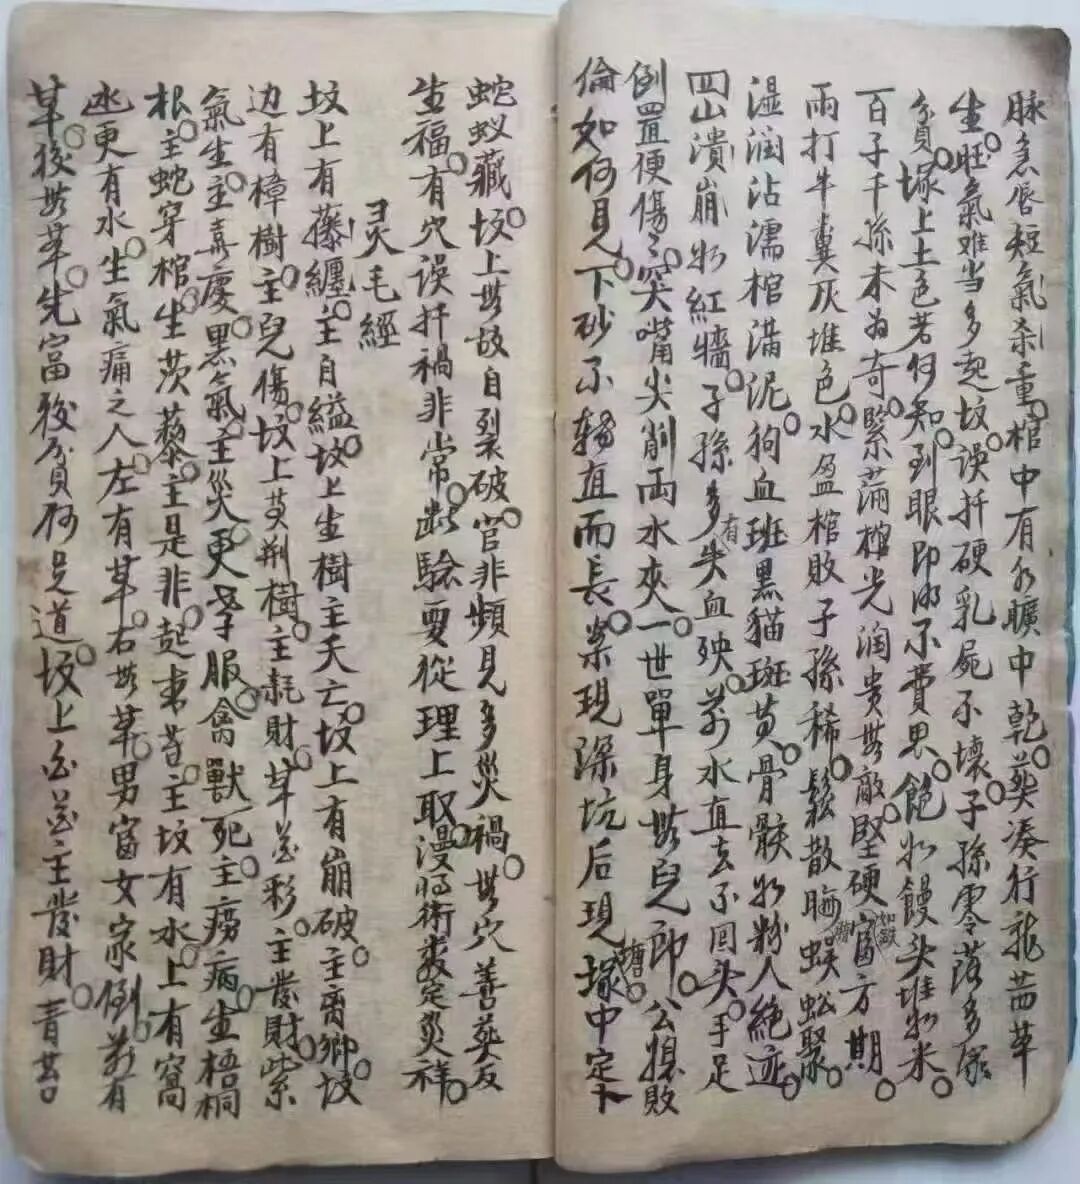 脉急唇短氣刹重。棺中有水曠中乾。葵湊行龍苗草
生。旺氣难当多起坟。误扦硬乳屍不壞。子孫零落多家
貧。塚上土色若何知。到眼即明不費思。飽如饅头堆如米。
百子千孫未為奇。緊滿棺光润贵無敵。堅硬如鉄富方期。
兩打牛糞灰堆色。水盈棺敗子孫稀。鬆散晦暗蜈蚣聚。
湿润沾濡棺满泥。狗血班黑貓斑黄。骨骸如粉人絶迹。
四山潰崩如紅牆。子孫多有失血殃。前水直去不囬头。手足
倒置便傷〻。突嘴尖削両水夾。一世單身無兒郎。公損敗
倫如何見。下砂不轉直而長。案現深坑后現槽。塚中定卜
蛇蚁藏。坟上無故自裂破。官非頻見多災禍。無穴善葬反
生福。有穴误扦禍非常。断驗要從理上取。漫将術数定災祥。
灵毛經
坟上有藤纏。主自縊。坟上生樹主夭亡。坟上有崩破。主离鄉。坟
边有樟樹。主兒傷。坟上黄荆樹。主耗財。草花彩。主發財。紫
氣生。主喜慶。黑氣。主災更孝服。禽獸死。主痨病。生梧桐
根。主蛇穿棺。生茨藜。主是非。起青苔。主坟有水。上有窩
氹更有水。生氣痛之人。左有草。右無草。男富女家倒。前有
草。後無草。先富後貧何足道。坟上白花主發財。青苔